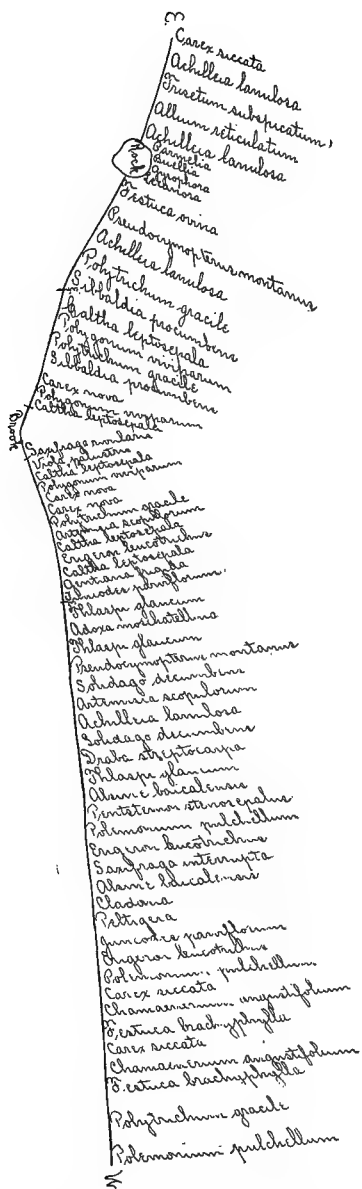 E.
Carex siccata
Achilleia lanulosa
Trisetum subspicatum,
Allium reticulatum
Achilleia lanulosa
Rock
Parmelia
Buellia
Lecanora
Festuca ovina
Pseudocymopterus montanus
Achilleia lanulosa
Polytrichum gracile
Sibbaldia procumbens
Caltha leptosepala
Polygonum viviparum
Polytrichum gracile
Sibbaldia procumbens
Carex nova
Polygonum viviparum
Caltha leptosepala
Brook
Viola palustris
Caltha leptosepala
Polygonum viviparum
Carex nova
Carex nova
Polytrichum gracile
Artemisia scopulorum
Caltha leptosepala
Erigeron leucotrichus
Caltha leptosepala
Gentiana frigida
Juncodes parviflorum.
Thlaspi glaucum
Adoxa moschatellina
Thlaspi glaucum
Pseudocymopterus montanus
Solidago decumbens
Artemisia scopulorum
Achilleia lanulosa
Solidago decumbens
Draba streptocarpa
Thlaspi glaucum
Alsine baicalensis
Pentstemon stenosepalus
Polemonium pulchellum
Erigeron leucotrichus
Saxifraga interrupta
Alsine baicalensis
Cladonia
Peltigera
Juncodes parviflorum
Erigeron leucotrichus
Polemonium pulchellum
Carex siccata
Chamaenerium angustifolium
Festuca brachyphylla
Carex siccata
Chamaenerium angustifolium
Festuca brachyphylla
Polytrichum gracile
Polemonium pulchellum
W